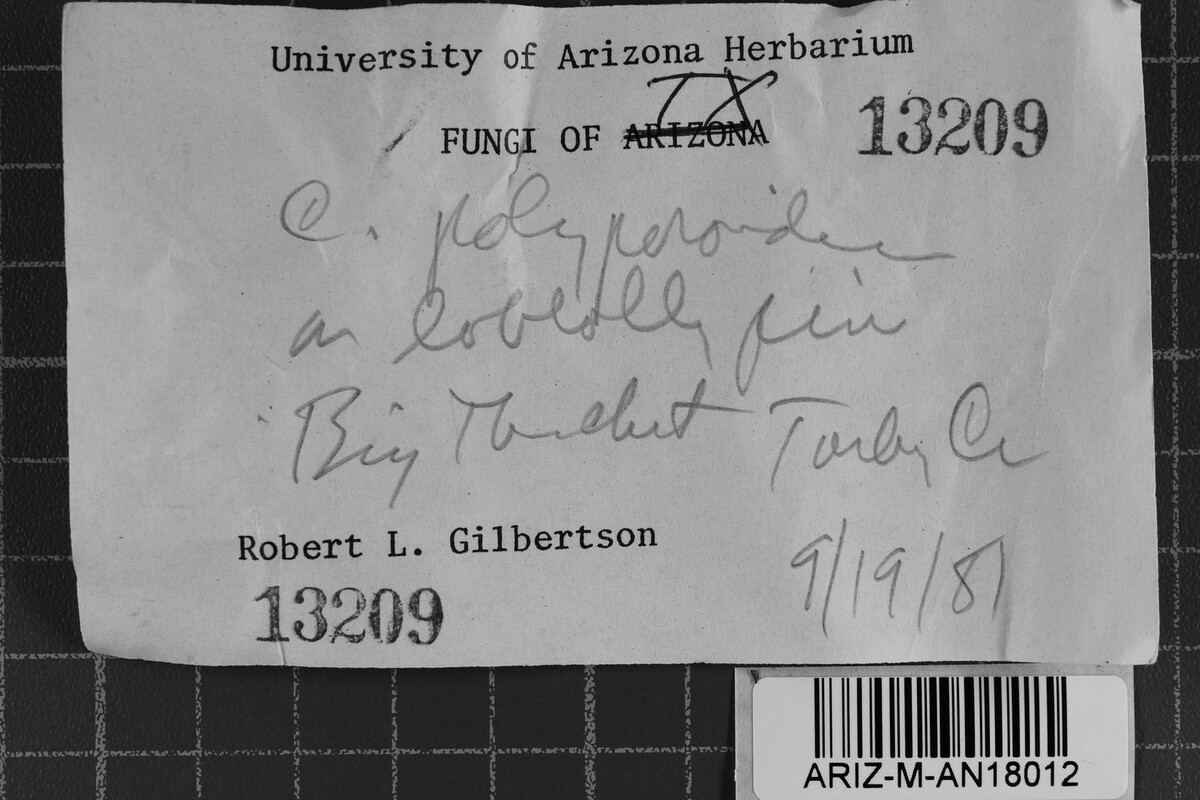 University of Arizona Herbarium
TX
FUNGI OF ARIZONA 13209
C. polyporoidea
on loblolly pine
Big Thicket Co
Robert L. Gilbertson
13209
9/19/81
ARIZ-M-AN18012